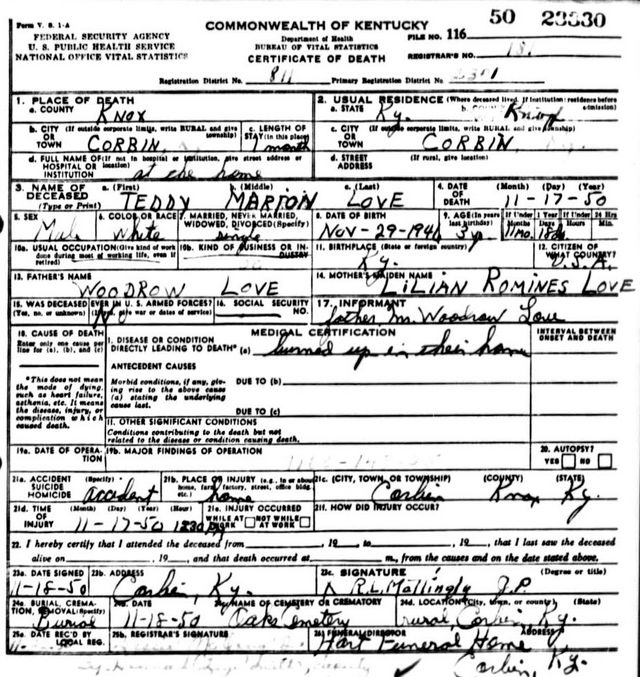 Form V. S. 1-A
COMMONWEALTH OF KENTUCKY
50 23330
FEDERAL SECURITY AGENCY
Department of Health
FILE NO. 116
U. S. PUBLIC HEALTH SERVICE
BUREAU OF VITAL STATISTICS
NATIONAL OFFICE VITAL STATISTICS
CERTIFICATE OF DEATH
REGISTRAR'S NO.
Registration District No. 811 Primary Registration District No.
1. PLACE OF DEATH
2. USUAL RESIDENCE (Where deceased lived. If institution: residence before admission)
a. COUNTY Knox
a. STATE Ky. b. COUNTY Knox
b. CITY (If outside corporate limits, write RURAL and give township) OR TOWN CORBIN
c. LENGTH OF STAY (in this place) 1 month
c. CITY (If outside corporate limits, write RURAL and give township) OR TOWN CORBIN
d. FULL NAME OF (If not in hospital or institution, give street address or location) HOSPITAL OR INSTITUTION at the home
d. STREET ADDRESS (If rural, give location)
3. NAME OF DECEASED (Type or Print) a. (First) TEDDY b. (Middle) MARION c. (Last) LOVE
4. DATE OF DEATH (Month) (Day) (Year) 11-17-50
5. SEX Male
6. COLOR OR RACE White
7. MARRIED, NEVER MARRIED, WIDOWED, DIVORCED (Specify) Single
8. DATE OF BIRTH Nov-29-194
9. AGE (In years last birthday) 3 yr If Under 1 Year Months 11 mo. Days 18 If Under 24 Hrs Hours Min.
10a. USUAL OCCUPATION (Give kind of work done during most of working life, even if retired)
10b. KIND OF BUSINESS OR INDUSTRY
11. BIRTHPLACE (State or foreign country) Ky.
12. CITIZEN OF WHAT COUNTRY? U.S.A.
13. FATHER'S NAME WOODROW LOVE
14. MOTHER'S MAIDEN NAME LILIAN ROMINES LOVE
15. WAS DECEASED EVER IN U. S. ARMED FORCES? (Yes, no, or unknown) (If yes, give war or dates of service) No
16. SOCIAL SECURITY NO.
17. INFORMANT father Mr. Woodrow Love
18. CAUSE OF DEATH
Enter only one cause per line for (a), (b), and (c)
MEDICAL CERTIFICATION
INTERVAL BETWEEN ONSET AND DEATH
I. DISEASE OR CONDITION DIRECTLY LEADING TO DEATH* (a) burned up in their home
*This does not mean the mode of dying, such as heart failure, asthenia, etc. It means the disease, injury, or complication which caused death.
ANTECEDENT CAUSES
Morbid conditions, if any, giving rise to the above cause (a) stating the underlying cause last.
DUE TO (b)
DUE TO (c)
II. OTHER SIGNIFICANT CONDITIONS
Conditions contributing to the death but not related to the disease or condition causing death.
19a. DATE OF OPERATION
19b. MAJOR FINDINGS OF OPERATION
20. AUTOPSY? YES NO
21a. ACCIDENT SUICIDE HOMICIDE accident
21b. PLACE OF INJURY (e.g., in or about home, farm, factory, street, office bldg. etc.) home
21c. (CITY, TOWN, OR TOWNSHIP) (COUNTY) (STATE) Corbin Knox Ky.
21d. TIME OF INJURY (Month) (Day) (Year) (Hour) 11-17-50
21e. INJURY OCCURRED WHILE AT WORK NOT WHILE AT WORK
21f. HOW DID INJURY OCCUR?
22. I hereby certify that I attended the deceased from , 19 , to , 19 , that I last saw the deceased
alive on , 19 , and that death occurred at m., from the causes and on the date stated above.
23a. DATE SIGNED 11-18-50
23b. ADDRESS Corbin, Ky.
23c. SIGNATURE (Degree or title) R.L. Mattingly J.P.
24a. BURIAL, CREMATION, REMOVAL (Specify) Burial
24b. DATE 11-18-50
24c. NAME OF CEMETERY OR CREMATORY Oaks Cemetery
24d. LOCATION (City, town, or county) (State) rural, Corbin, Ky.
25a. DATE REC'D BY LOCAL REG.
25b. REGISTRAR'S SIGNATURE
26. FUNERAL DIRECTOR ADDRESS Hart Funeral Home
Corbin, Ky.